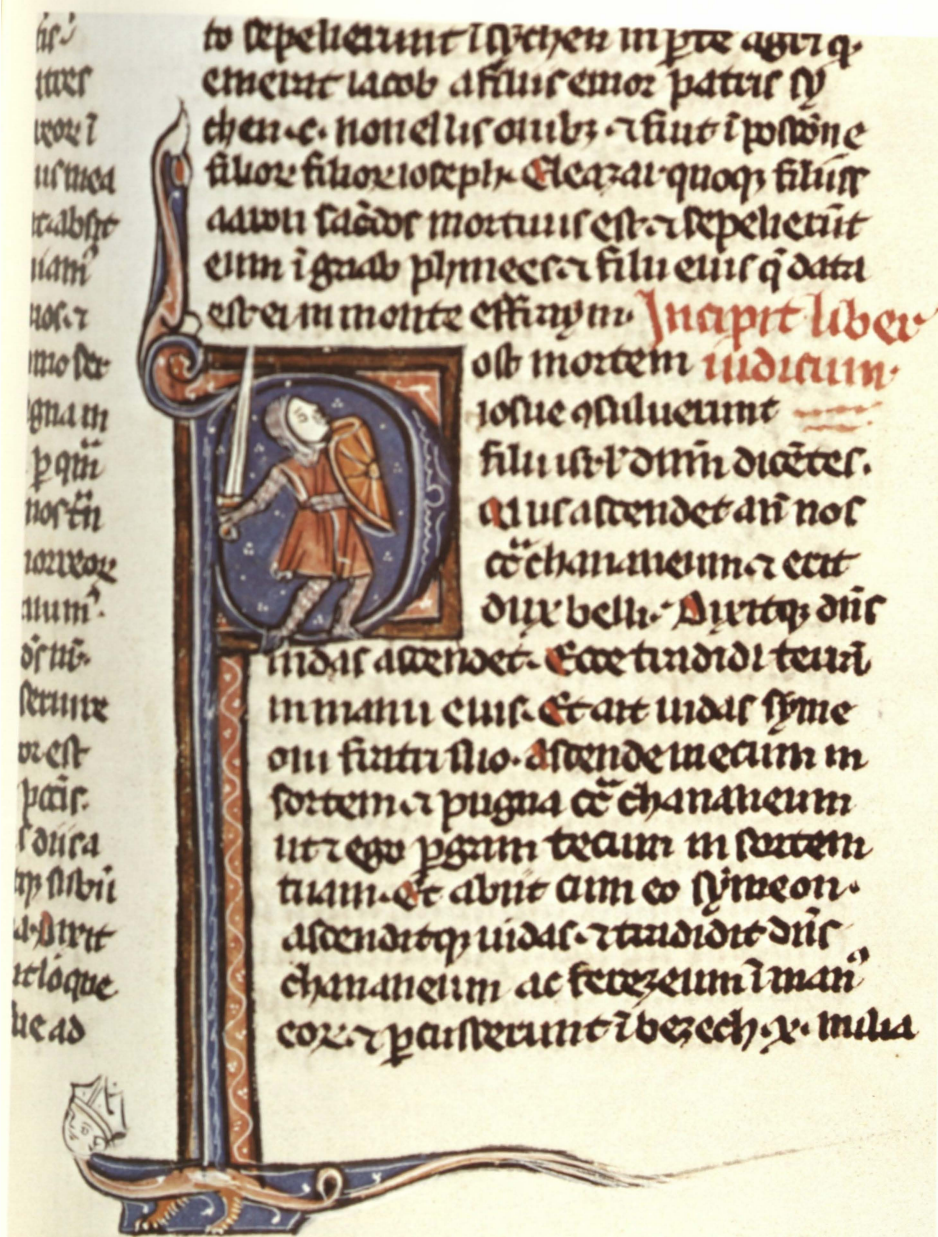 absit
niam
nos·⁊
egna in
seruire
or est
Dixit
loque
sue ad
to sepelierunt ī sychen in ꝑte agri q̄
emerat iacob a filiis emor patris sy
chen·c· nouellis ouibꝫ·⁊ fuit ī possōne
filioꝝ filioꝝ ioseph· Eleazar quoqꝫ filius
aaron sac̄dos mortuus est·⁊ sepelierūt
eum ī gaab phynees·⁊ filii eius q̄ data
est ei in monte effraym· Incipit liber
ost mortem iudicum·
iosue ꝯsuluerunt
filii isrl̄ dn̄m dicētes·
Quis ascendet an̄ nos
cc̄ chananeum ⁊ erit
dux belli· Dixitqꝫ dn̄s
iudas ascendet· Ecce tradidi terrā
in manu eius· Et ait iudas syme
oni fratri suo· Ascende mecum in
sortem ⁊ pugna cc̄ chananeum
ut ⁊ ego ꝑgam tecum in sortem
tuam· Et abiit cum eo symeon·
ascenditqꝫ iudas·⁊ tradidit dn̄s
chananeum ac ferezeum ī man᷒
eoꝝ·⁊ ꝑcusserunt ī bezech·x· milia